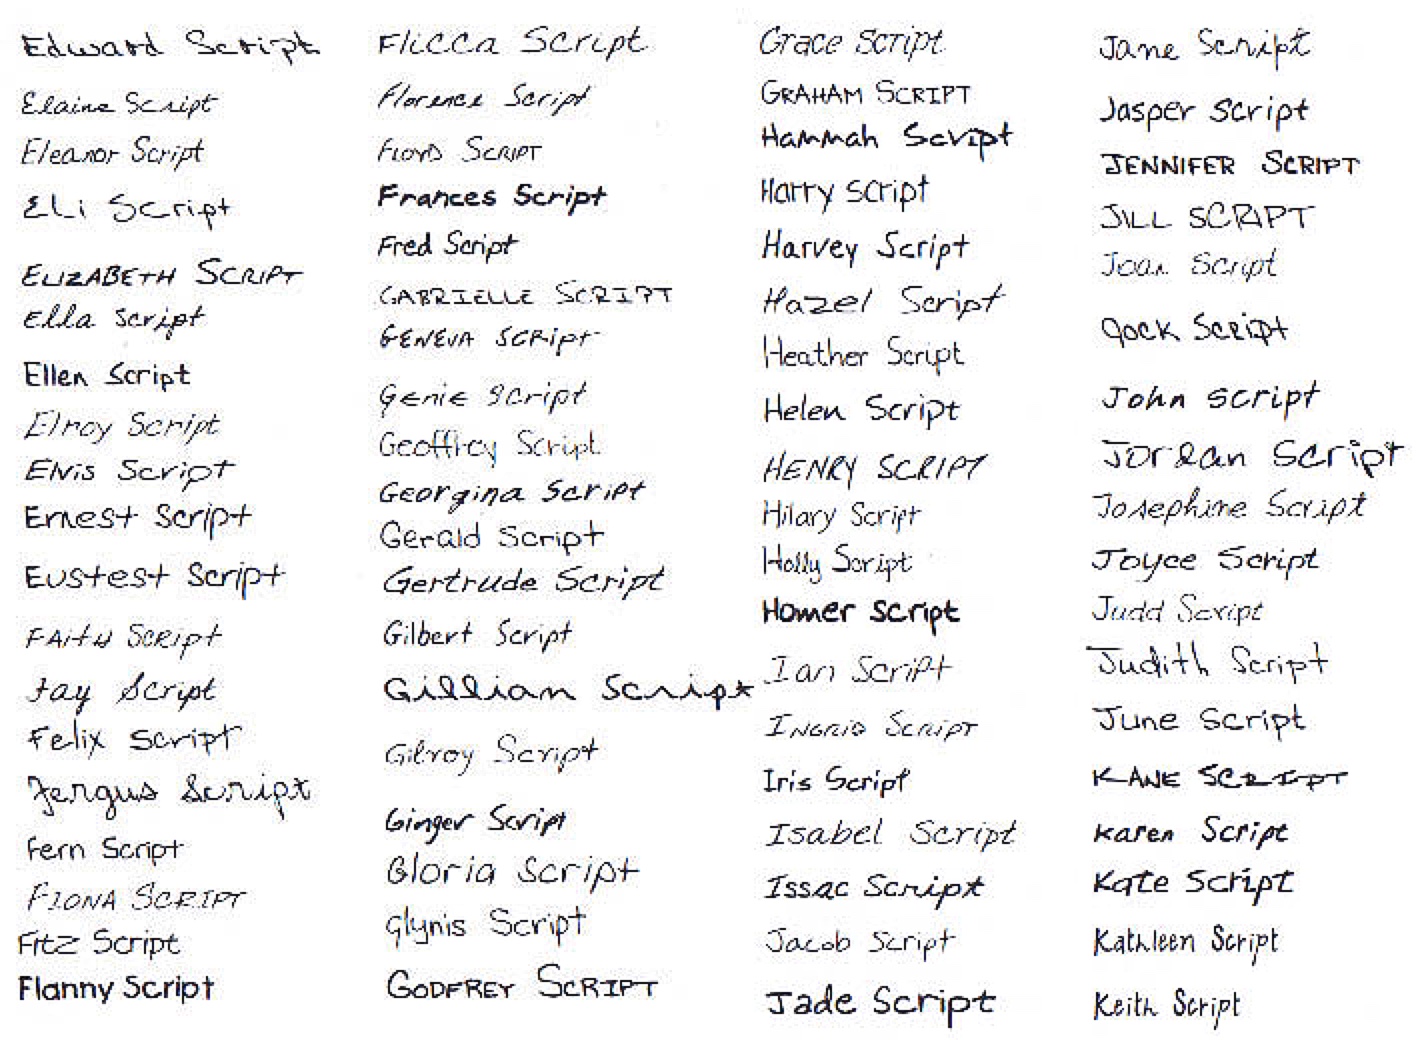 Edward Script
Elaine Script
Eleanor Script
Eli Script
ELIZABETH SCRIPT
Ella Script
Ellen Script
Elroy Script
Elvis Script
Ernest Script
Eustest Script
FAITH SCRIPT
Fay Script
Felix Script
Fergus Script
Fern Script
FIONA SCRIPT
Fitz Script
Flanny Script
Flicca Script
Florence Script
FLOYD SCRIPT
Frances Script
Fred Script
GABRIELLE SCRIPT
GENEVA SCRipt
Genie Script
Geoffrey Script
Georgina Script
Gerald Script
Gertrude Script
Gilbert Script
Gillian Script
Gilroy Script
Ginger Script
Gloria Script
Glynis Script
GODFREY SCRIPT
Grace Script
GRAHAM SCRIPT
Hammah Script
Harry Script
Harvey Script
Hazel Script
Heather Script
Helen Script
HENRY SCRIPT
Hilary Script
Holly Script
Homer Script
Ian Script
INGRID SCRIPT
Iris Script
Isabel Script
Issac Script
Jacob Script
Jade Script
Jane Script
Jasper Script
JENNIFER SCRIPT
JILL SCRIPT
Joan Script
Jock Script
John Script
Jordan Script
Josephine Script
Joyce Script
Judd Script
Judith Script
June Script
KANE SCRIPT
Karen Script
Kate Script
Kathleen Script
Keith Script